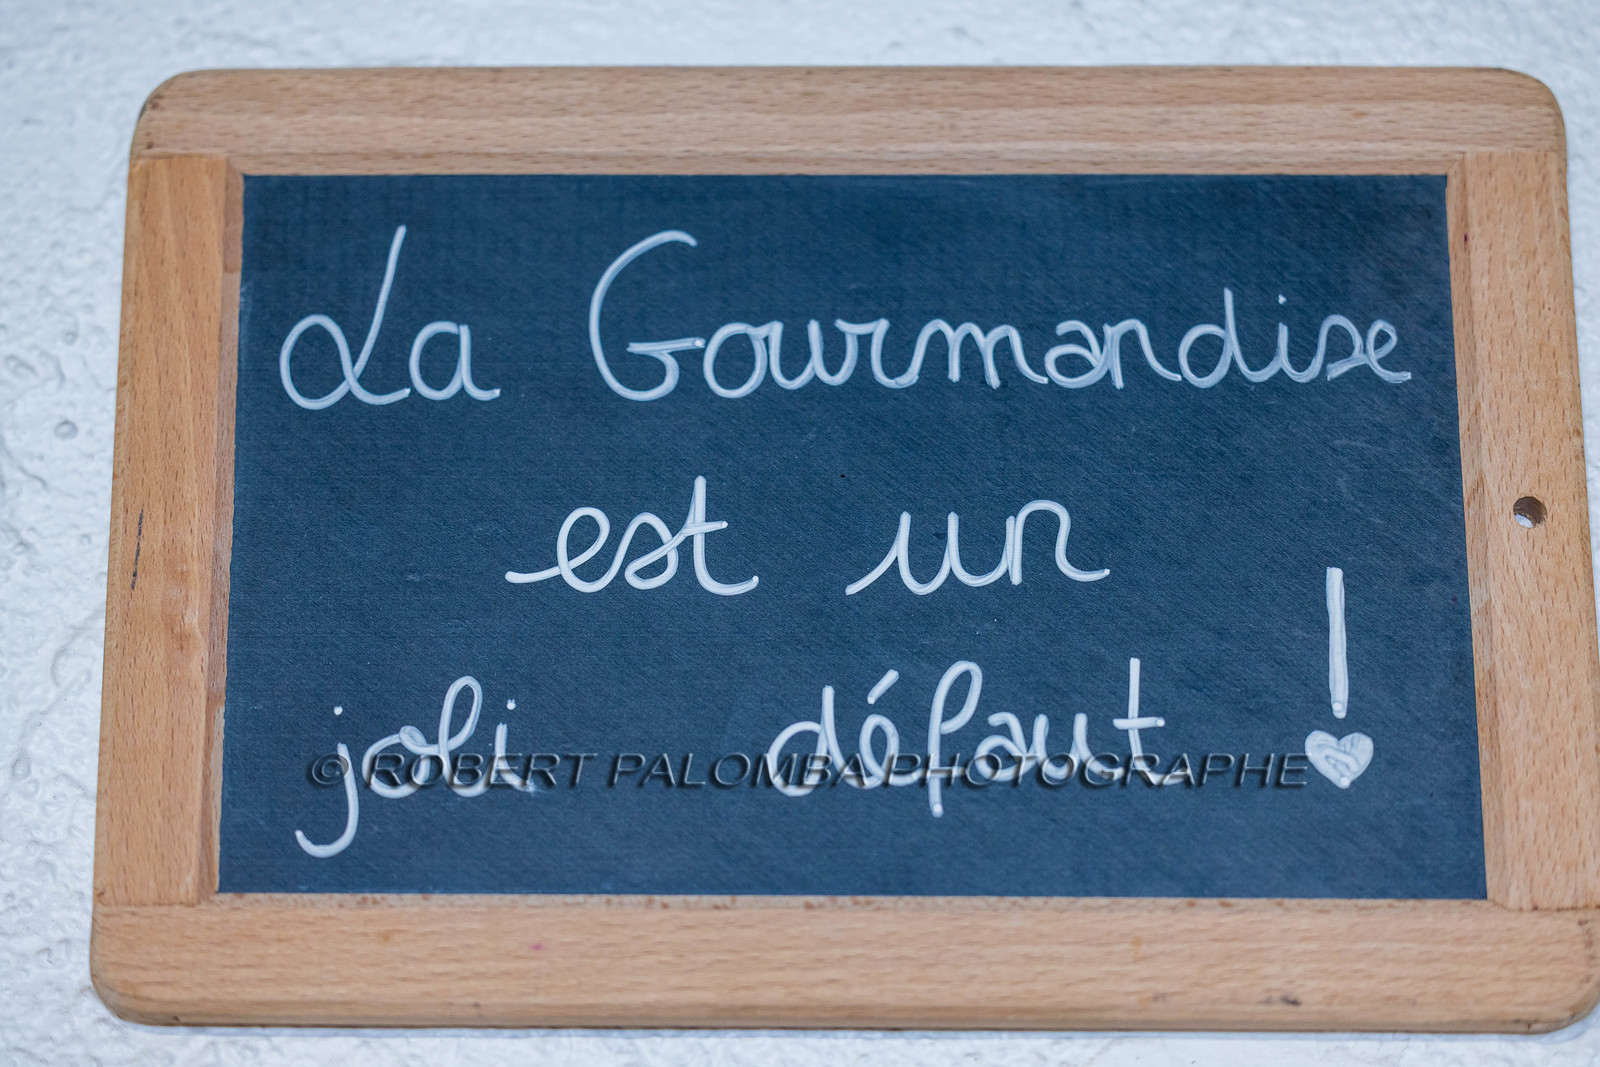 La Gourmandise
est un
joli défaut !
© ROBERT PALOMBA PHOTOGRAPHE